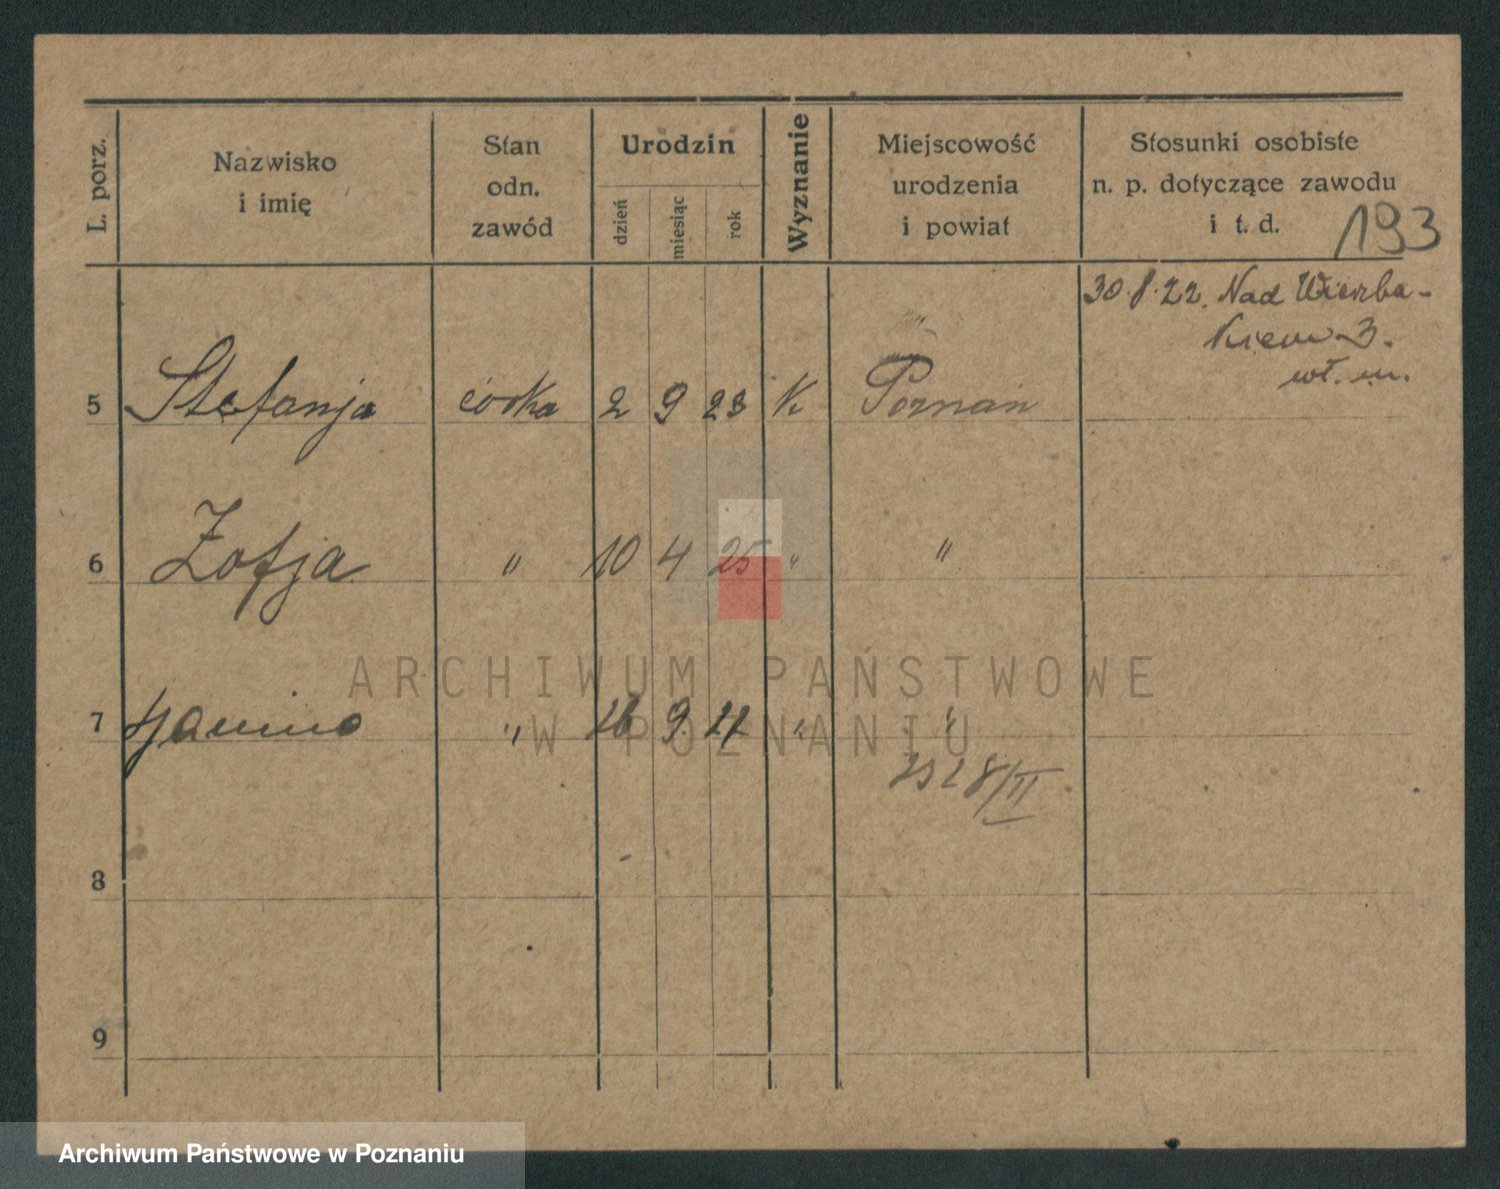 L. porz.
Nazwisko
i imię
Stan
odn.
zawód
Urodzin
dzień
miesiąc
rok
Wyznanie
Miejscowość
urodzenia
i powiat
Stosunki osobiste
n. p. dotyczące zawodu
i t. d.
193
30.8.22. Nad Wierzba-
kiem 3.
wł. m.
5 Stefanja córka 2 9 23 K Poznań
6 Zofja " 10 4 25 " "
7 Janina " 16 9 " "
8
9
ARCHIWUM PAŃSTWOWE
W POZNANIU
Archiwum Państwowe w Poznaniu